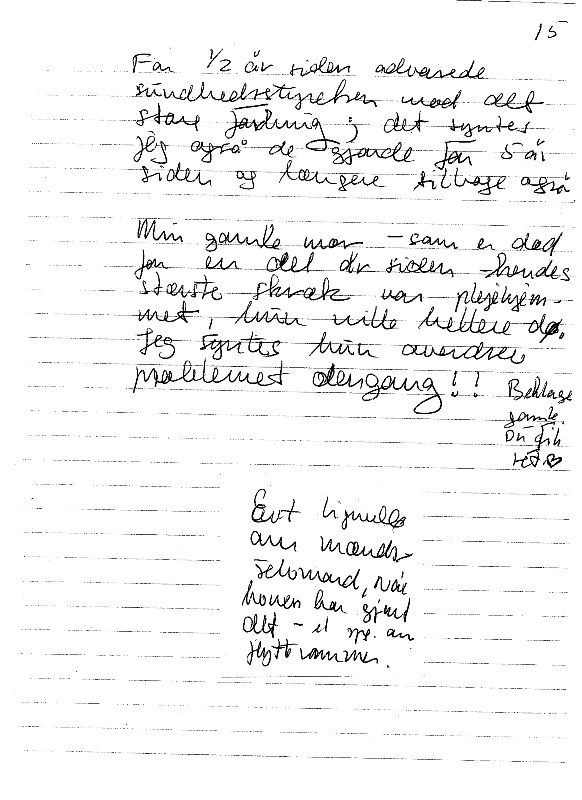 15
For 1/2 år siden advarede
sundhedsstyrelsen mod det
store ; det syntes
jeg også de gjorde for 5 år
siden og længere tilbage også
Min gamle mor – som er død
for en del år siden – hendes
største skræk var plejehjem-
met, hun ville hellere dø.
Jeg syntes hun overdrev
problemet dengang!!
Beklage
gamle.
Du fik
ret
Evt
om mænds
selvmord, når
konen har gjort
det – et spg. om